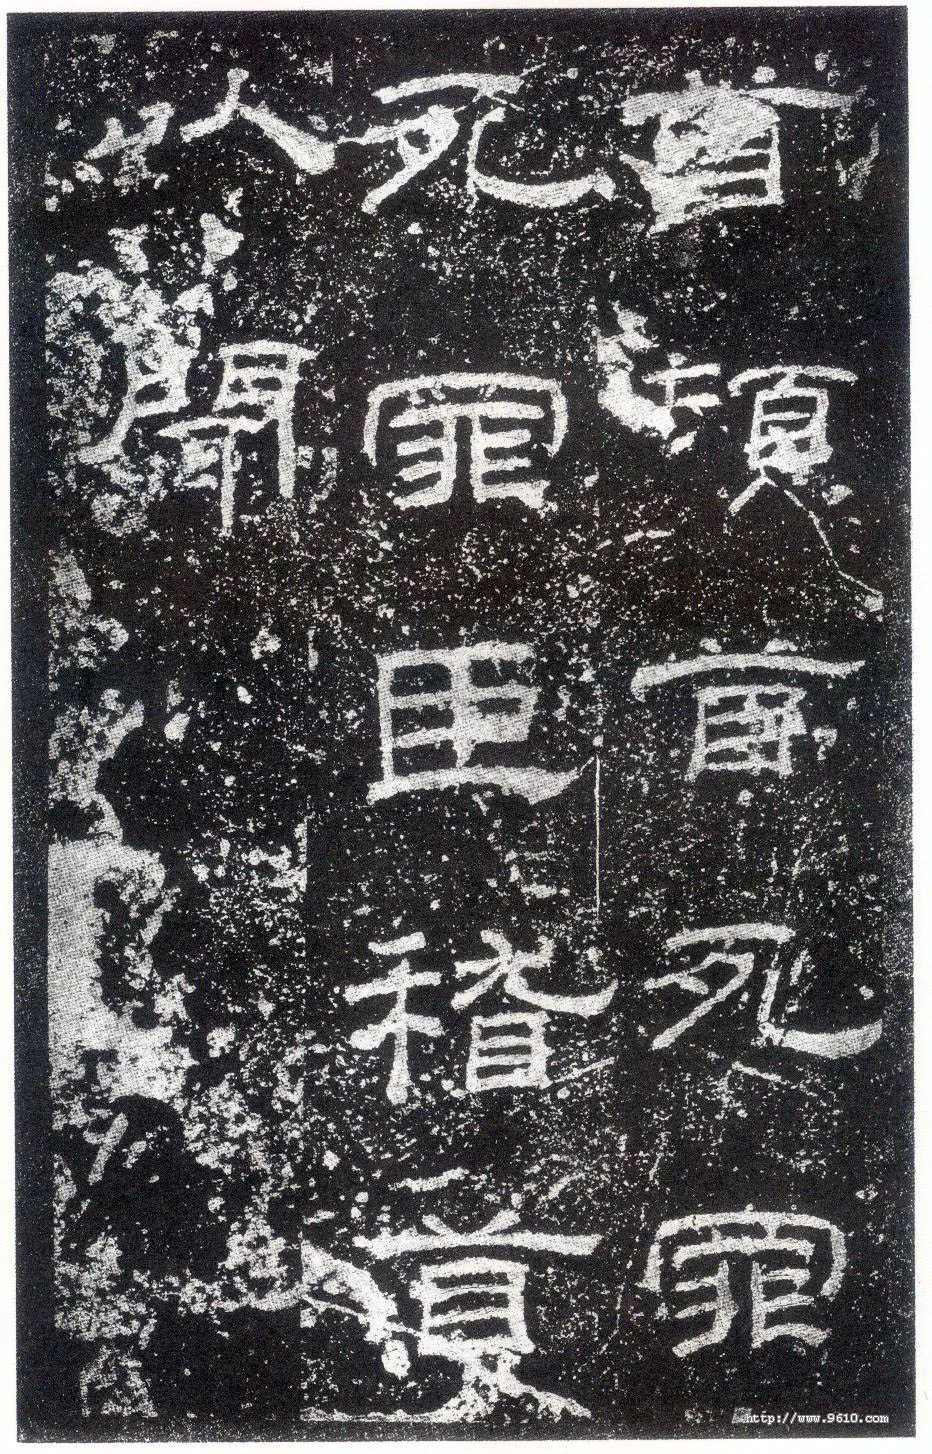 首頓首死罪
死罪臣稽首
以聞
http://www.9610.com